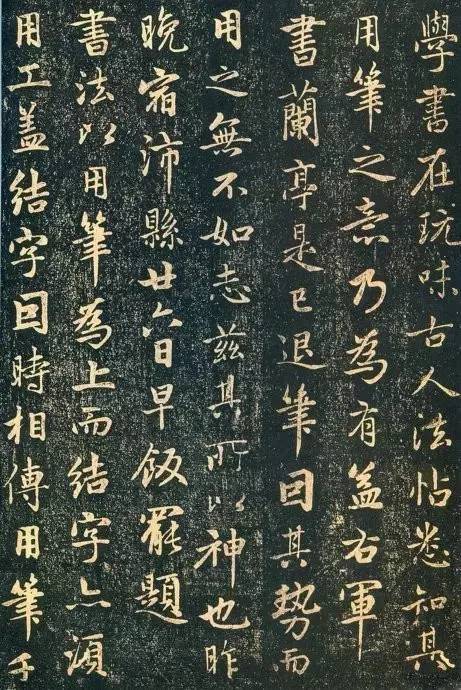 學書在玩味古人法帖悉知其
用筆之意乃為有益右軍
書蘭亭是已退筆因其勢而
用之無不如志茲其所以神也昨
晚宿沛縣廿六日早飯罷題
書法以用筆為上而結字亦須
用工盖結字因時相傳用筆千